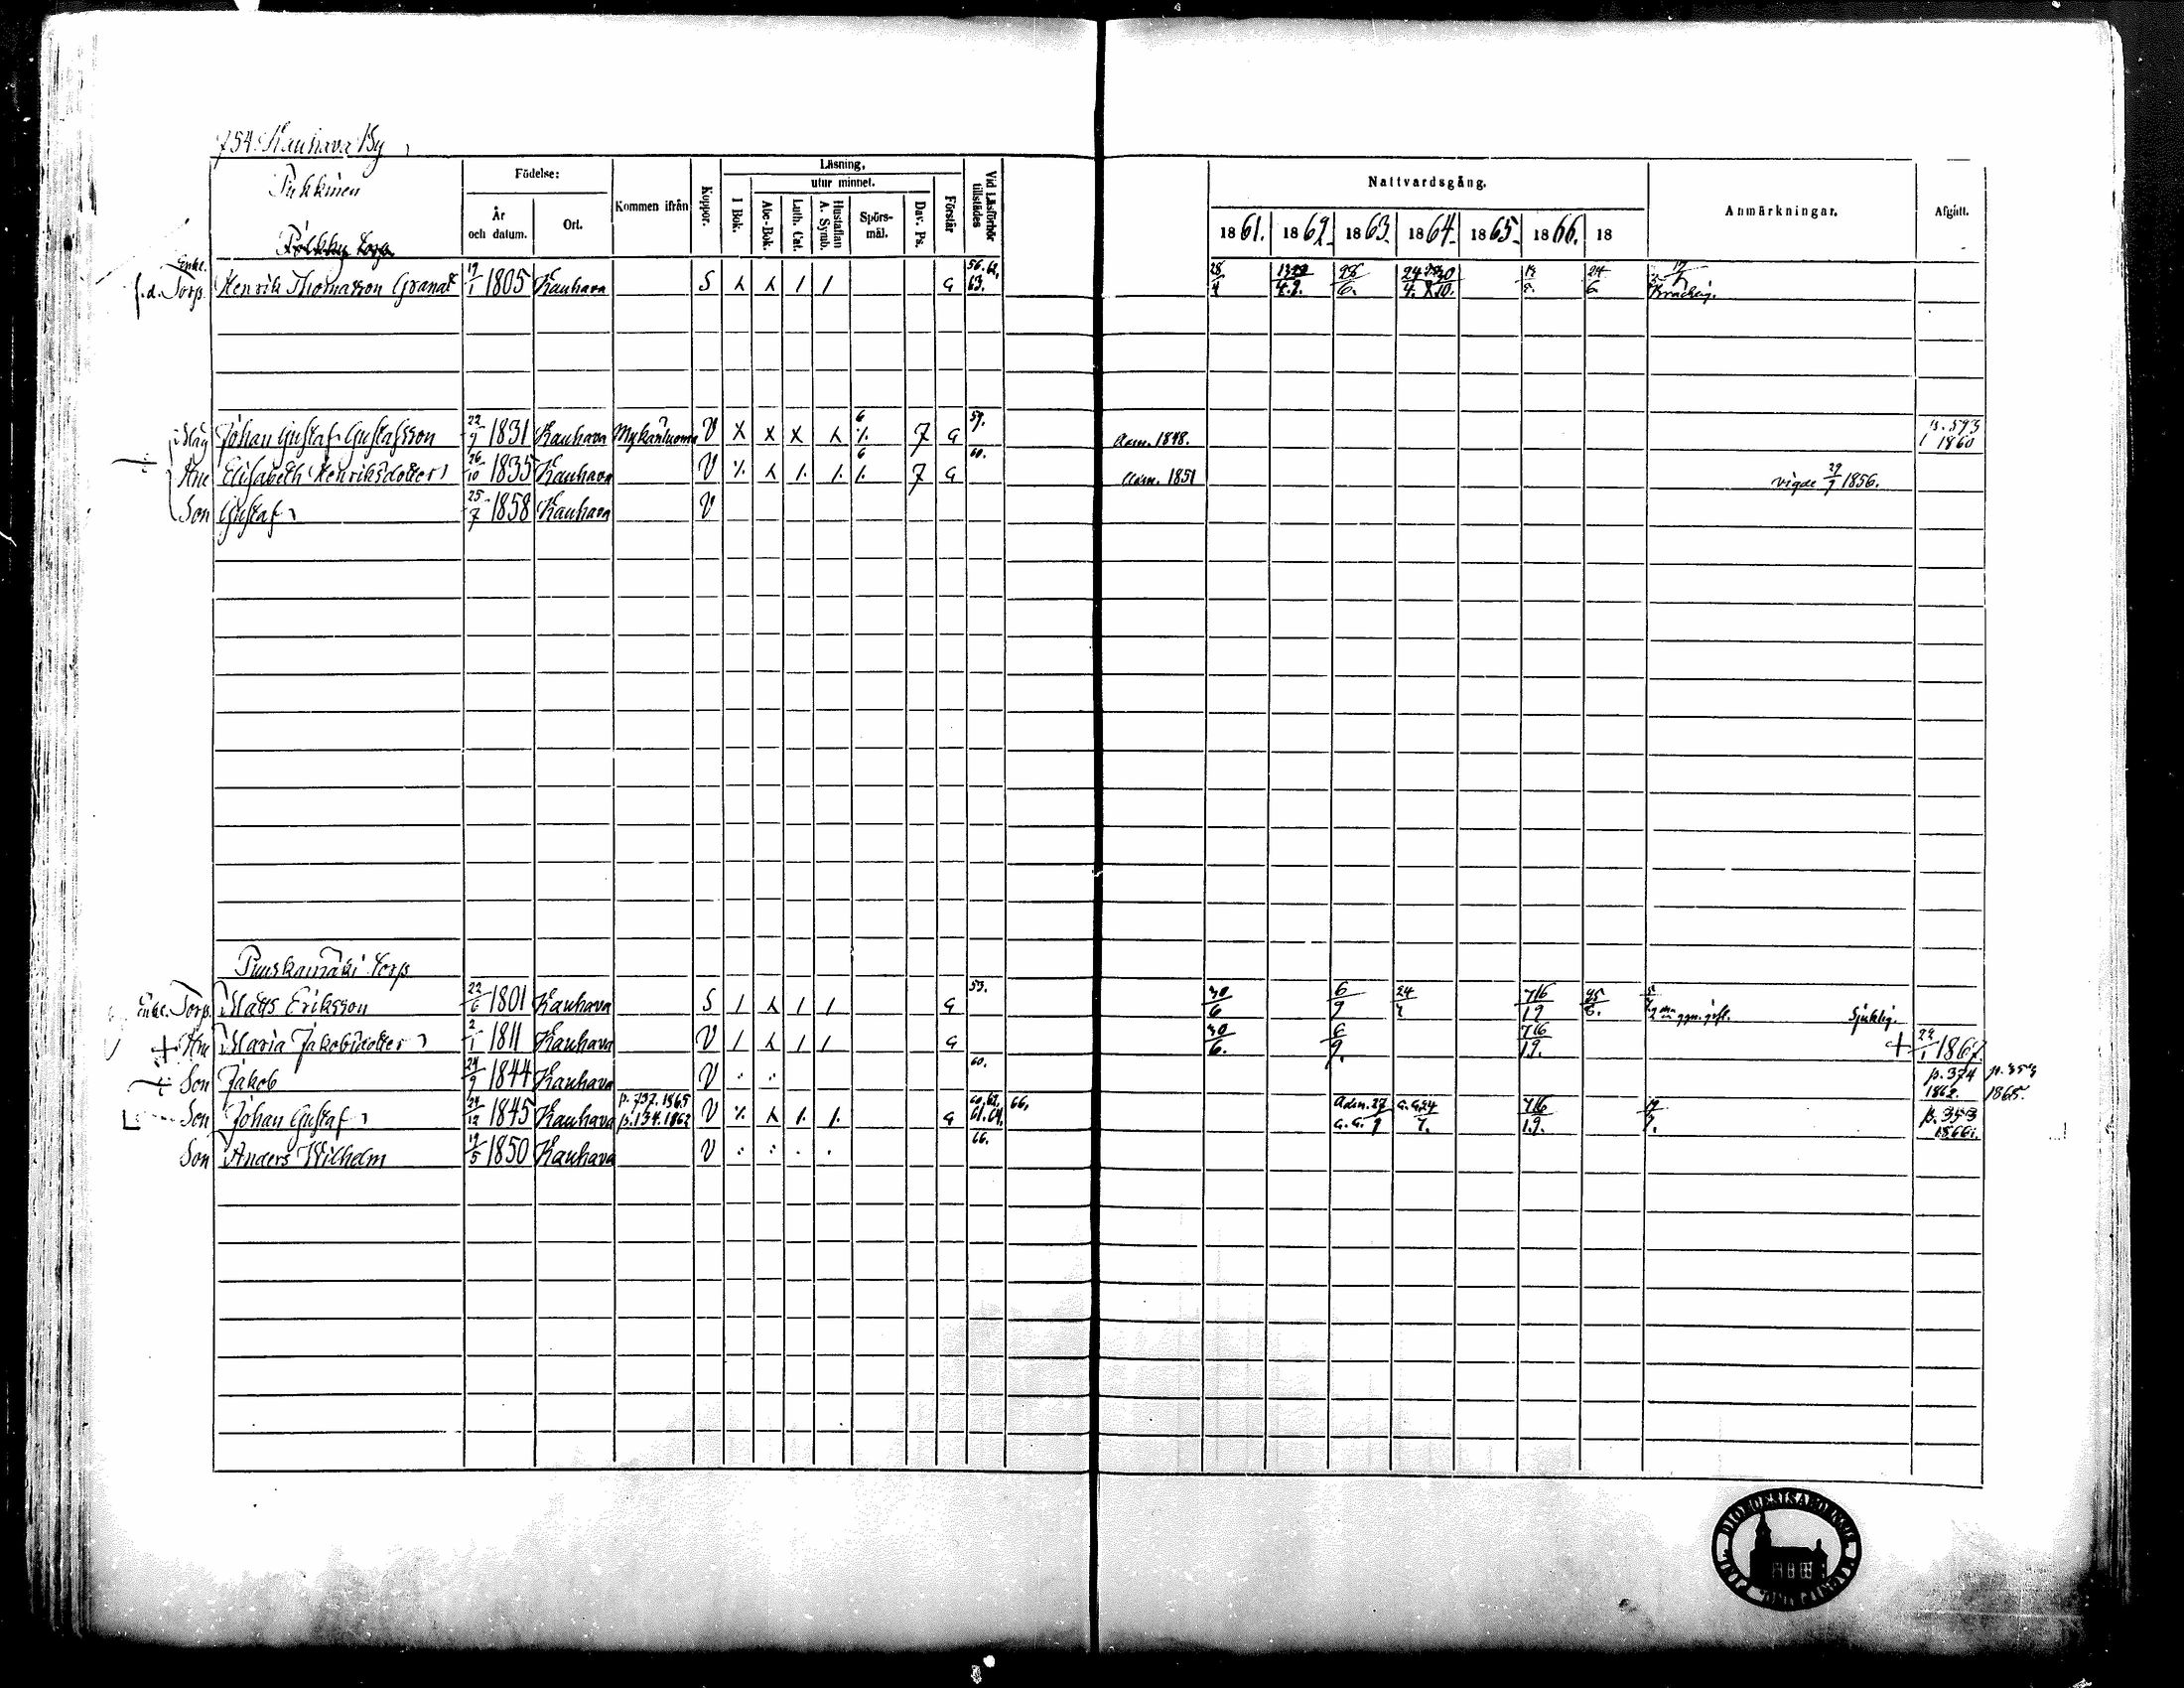 754. Kauhava By
Pukkinen
Födelse:
År och datum.
Ort.
Kommen ifrån
Koppor.
Läsning,
I Bok.
utur minnet.
Abc-Bok.
Luth. Cat.
Hustaflan A. Symb.
Spörsmål.
Dav. Ps.
Förstår
Vid Läsförhör tillstädes
Nattvardsgång.
1861. 1862. 1863. 1864. 1865. 1866. 18
Anmärkningar.
Afgått.
Enkl.
f.d. Torp. Henrik Thomasson Granat 19/1 1805 Kauhava S G 56. 62. 63. 28/4 28/6. 24/6
Måg Johan Gustaf Gustafsson 22/9 1831 Kauhava Mykänluoma V X X X 6 7 G 59. Adm. 1848. p. 593 1860
Hu Elisabeth Henriksdotter 26/10 1835 Kauhava V 6 7 G 60. Adm. 1851 vigde 29/7 1856.
Son Gustaf 25/7 1858 Kauhava V
Puuskamäki Torp
Enkl. Torp. Matts Eriksson 22/6 1801 Kauhava S G 53. 30/6 6/9 24/7 7 16/1 9 25/6. Sjuklig.
+ Hu Maria Jakobsdotter 2/1 1811 Kauhava V G 30/6. 6/9. 7 16/1 9. + 22/1 1867
Son Jakob 24/9 1844 Kauhava V 60. p. 374 1862. 1865.
Son Johan Gustaf 24/12 1845 Kauhava p. 737. 1865 p. 134. 1862 V G 60. 62. 61. 64. 66. Adm. 27 G. G. 9 G. G. 24/7. 7 16/1 9. 19/7. p. 353 1866.
Son Anders Wilhelm 19/5 1850 Kauhava V 66.